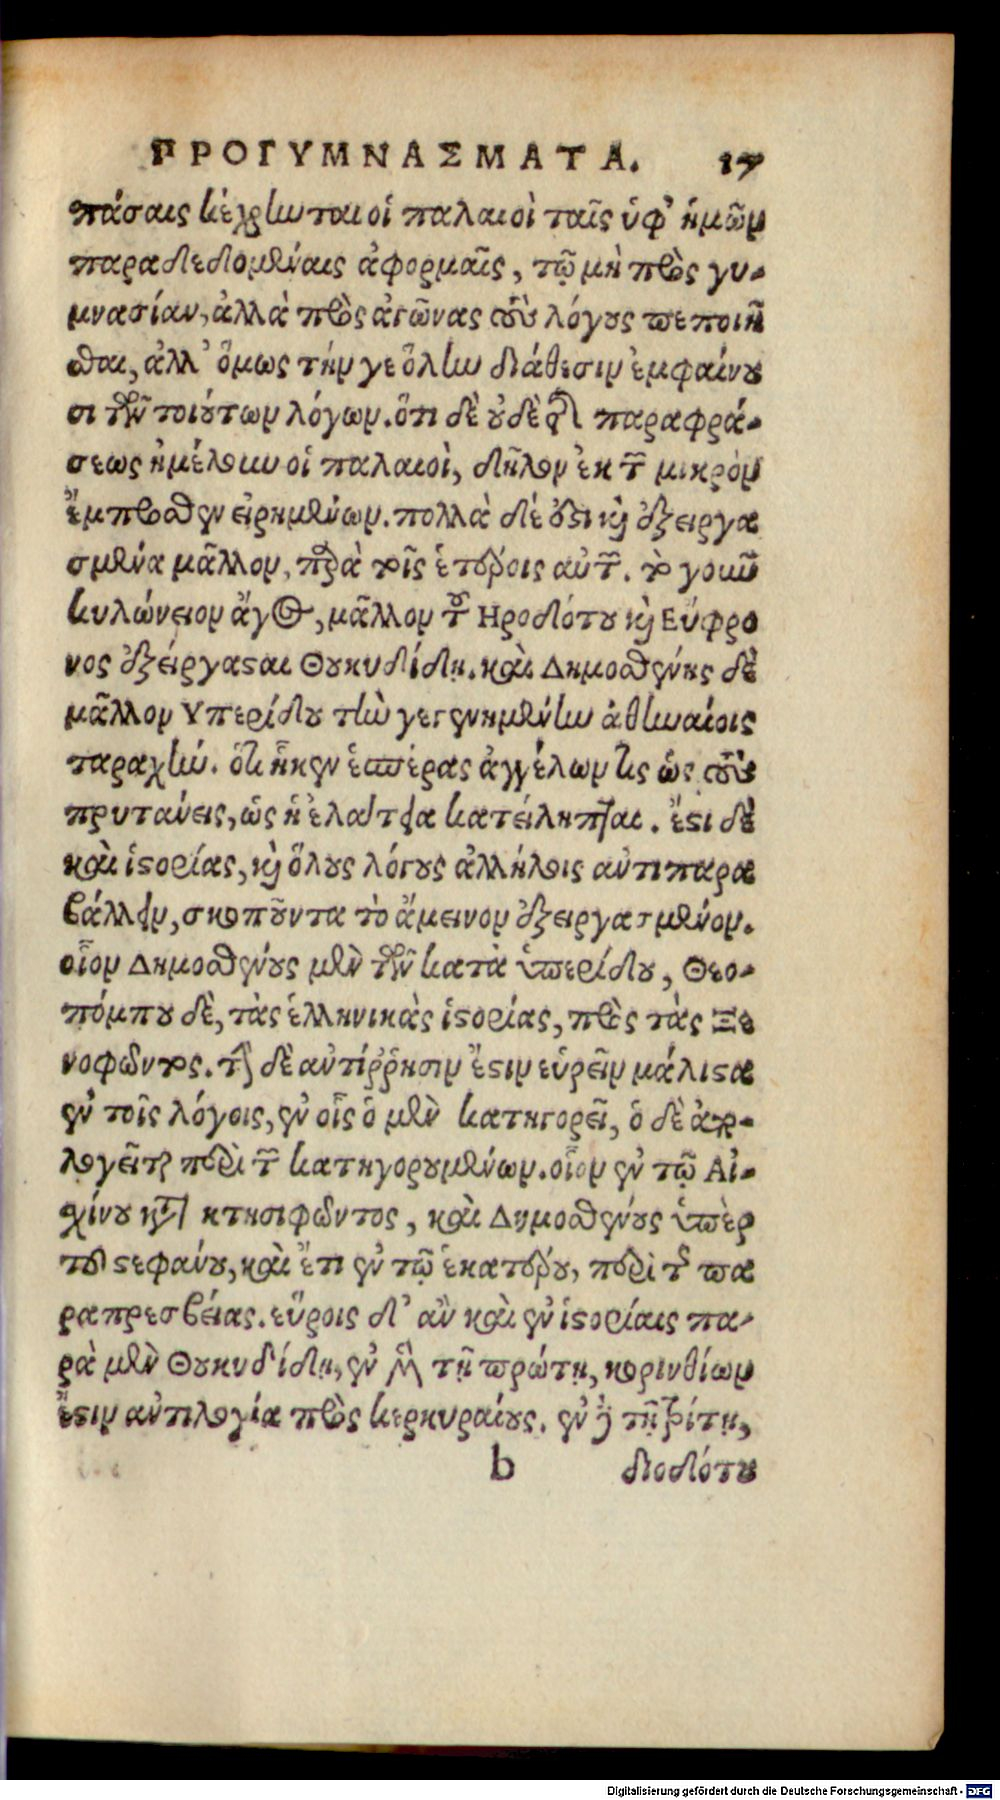 ΠΡΟΓΥΜΝΑΣΜΑΤΑ. 17
πάσαις κέχρηνται οἱ παλαιοὶ ταῖς ὑφ' ἡμῶν
παραδεδομέναις ἀφορμαῖς, τῷ μὴ πρὸς γυ-
μνασίαν, ἀλλὰ πρὸς ἀγῶνας τοὺς λόγους πεποιῆ
σθαι, ἀλλ' ὅμως τήν γε ὅλην διάθεσιν ἐμφαίνου
σι τῶν τοιούτων λόγων. ὅτι δὲ οὐδὲ τῆς παραφρά-
σεως ἠμέλουν οἱ παλαιοὶ, δῆλον ἐκ τῶν μικρὸν
ἔμπροσθεν εἰρημένων. πολλὰ δέ ἐστι καὶ ἐξειργα
σμένα μᾶλλον, παρὰ τοῖς ἑτέροις αὐτῶν. τὸ γοῦν
κυλώνειον ἄγος, μᾶλλον τοῦ Ἡροδότου καὶ Εὔφρο
νος ἐξείργασται Θουκυδίδῃ. καὶ Δημοσθένης δὲ
μᾶλλον Υπερίδου τὴν γεγενημένην ἀθηναίοις
ταραχήν. ὅτε ἧκεν ἑσπέρας ἀγγέλων τις ὡς τοὺς
πρυτάνεις, ὡς ἡ ἐλάτεια κατείληπται. ἔστι δὲ
καὶ ἱστορίας, καὶ ὅλους λόγους ἀλλήλοις ἀντιπαρα
βάλλειν, σκοποῦντα τὸ ἄμεινον ἐξειργασμένον.
οἷον Δημοσθένους μὲν τὸν κατὰ ὑπερίδου, Θεο-
πόμπου δὲ, τὰς ἑλληνικὰς ἱστορίας, πρὸς τὰς Ξε
νοφῶντος. τὴν δὲ ἀντίῤῥησιν ἔστιν εὑρεῖν μάλιστα
ἐν τοῖς λόγοις, ἐν οἷς ὁ μὲν κατηγορεῖ, ὁ δὲ ἀπο-
λογεῖται περὶ τῶν κατηγορουμένων. οἷον ἐν τῷ Αἰ-
σχίνου κατὰ κτησιφῶντος, καὶ Δημοσθένους ὑπὲρ
τοῦ στεφάνου, καὶ ἔτι ἐν τῷ ἑκατέρου, περὶ τῆς πα
ραπρεσβείας. εὕροις δ' ἂν καὶ ἐν ἱστορίαις πα-
ρὰ μὲν Θουκυδίδῃ, ἐν μὲν τῇ πρώτῃ, κορινθίων
ἔστιν ἀντιλογία πρὸς κερκυραίους. ἐν δὲ τῇ τρίτῃ,
b διοδότου
Digitalisierung gefördert durch die Deutsche Forschungsgemeinschaft - DFG